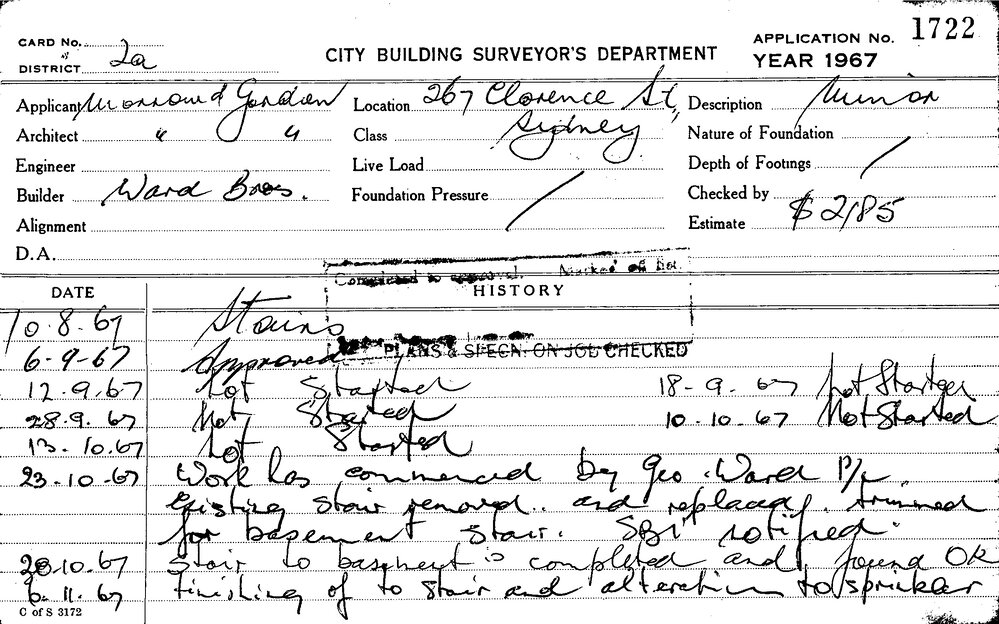 CARD No.
& DISTRICT 2a
CITY BUILDING SURVEYOR'S DEPARTMENT
APPLICATION No. 1722
YEAR 1967
Applicant Morrow & Gordon Location 267 Clarence St, Description Minor
Architect " " Class Sydney Nature of Foundation
Engineer Live Load Depth of Footings /
Builder Ward Bros. Foundation Pressure / Checked by
Alignment Estimate $2185
D.A.
Completed to approval. Marked off list.
DATE HISTORY
10.8.67 Stairs
PLANS & SPECN. ON JOB CHECKED
6-9-67 Approved
12.9.67 Not Started 18-9.67 Not Started
28.9.67 Not Started 10.10.67 Not Started
13.10.67 Not Started
23-10-67 Work has commenced by Geo. Ward P/L
Existing stair removed.. and replaced, trimmed
for basement stair. SBI notified.
28.10.67 Stair to basment is completed and found OK
6.11.67 finishing of to stair and alteration to sprinkler
C of S 3172